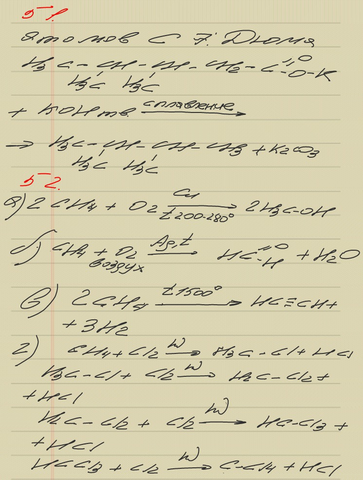 5-1.
атомов C 7. Дюма
H3C-CH-CH-CH2-C=O-O-K
H3C H3C
+ KOH тв сплавление →
→ H3C-CH-CH-CH3 + K2CO3
H3C H3C
5-2.
а) 2CH4 + O2 Cu t 200-280° → 2H3C-OH
б) CH4 + O2 Ag, t → HC=O-H + H2O
воздух
в) 2CH4 t 1500° → HC≡CH +
+ 3H2
г) CH4 + Cl2 hν → H3C-Cl + HCl
H3C-Cl + Cl2 hν → H2C-Cl2 +
+ HCl
H2C-Cl2 + Cl2 hν → HC-Cl3 +
+ HCl
HCCl3 + Cl2 hν → C-Cl4 + HCl